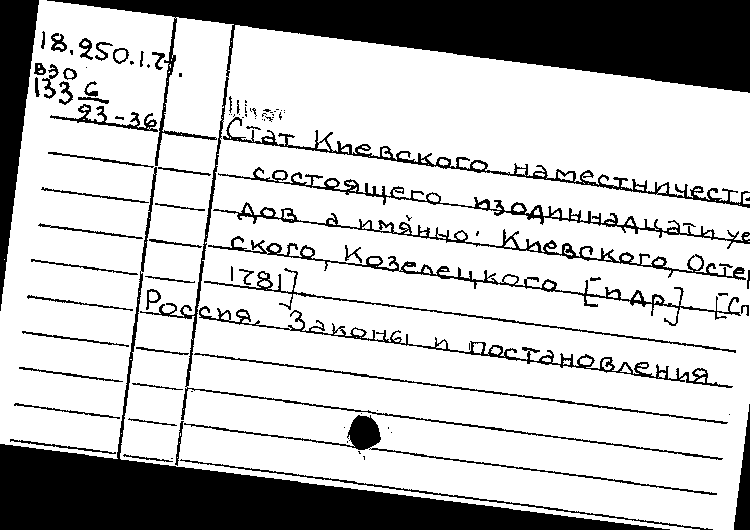 18.250.1.71.
ВЭО
133 6/23-36
Штат
Стат Киевского наместничеств
состоящего изодиннадцати уе
дов а имянно: Киевского, Остер
ского, Козелецкого [и др.]. [Сп
1781]
Россия. Законы и постановления.